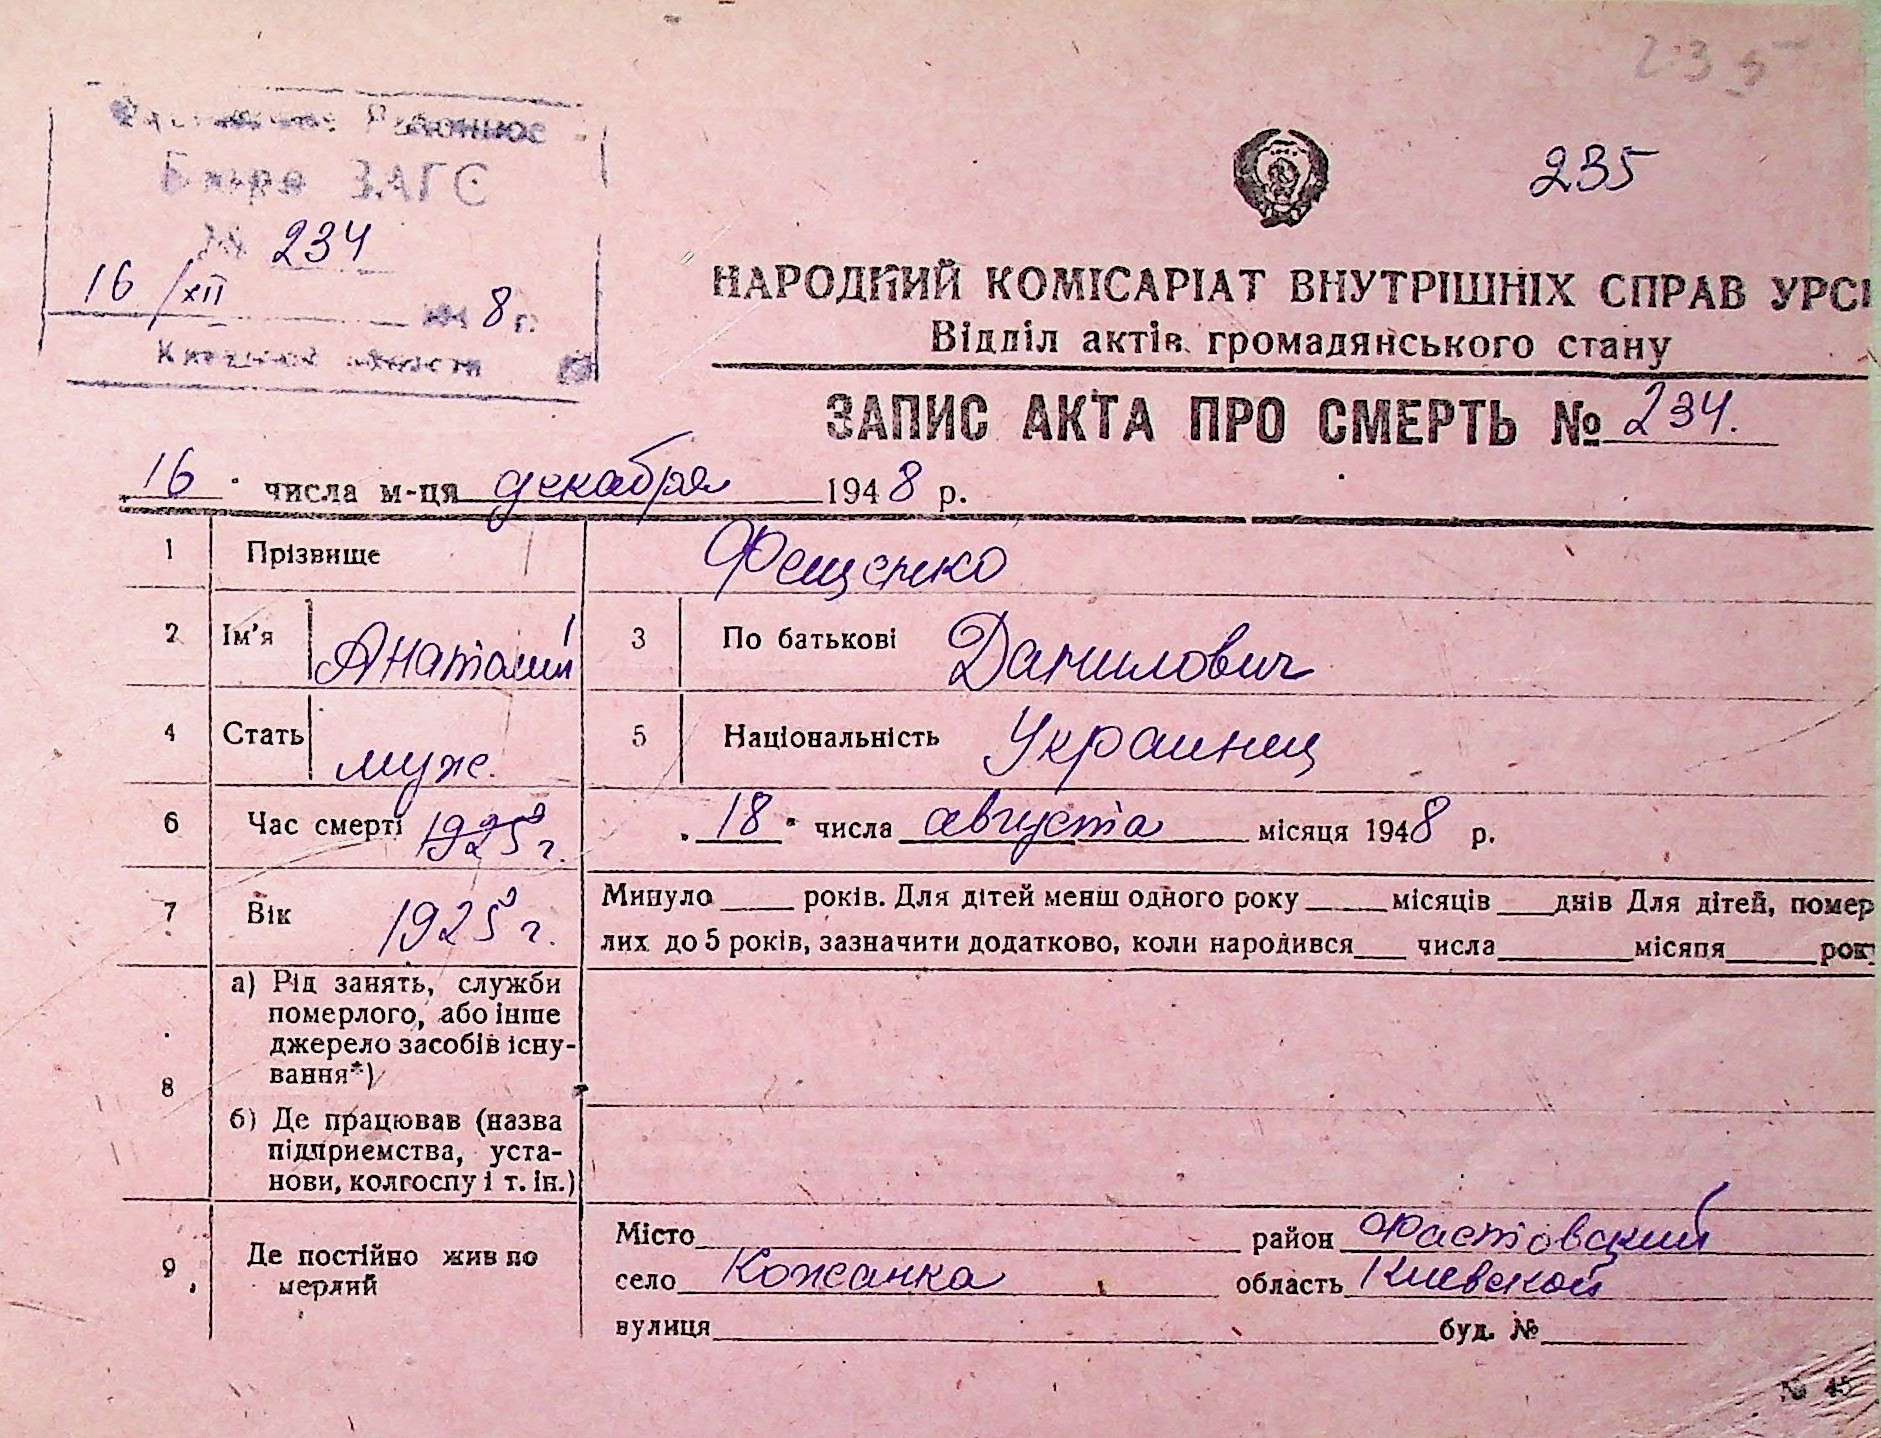 235
Районное
Бюро ЗАГС
№ 234
16/XII 8 г.
Киевской области
235
НАРОДНИЙ КОМІСАРІАТ ВНУТРІШНІХ СПРАВ УРСР
Відділ актів громадянського стану
ЗАПИС АКТА ПРО СМЕРТЬ № 234.
16 числа м-ця декабря 1948 р.
1 Прізвище Фещенко
2 Ім'я Анатолий 3 По батькові Данилович
4 Стать муж. 5 Національність Украинец
6 Час смерті 1925 г. "18" числа августа місяця 1948 р.
7 Вік 1925 г. Минуло ____ років. Для дітей менш одного року ____ місяців ____ днів Для дітей, помер
лих до 5 років, зазначити додатково, коли народився ____ числа ____ місяця ____ рок
8 а) Рід занять, служби
померлого, або інше
джерело засобів існу-
вання*)
б) Де працював (назва
підприемства, уста-
нови, колгоспу і т. ін.)
9 Де постійно жив по
мерлий
Місто ____ район Фастовский
село Кожанка область Киевской
вулиця ____ буд. № ____
№ 45